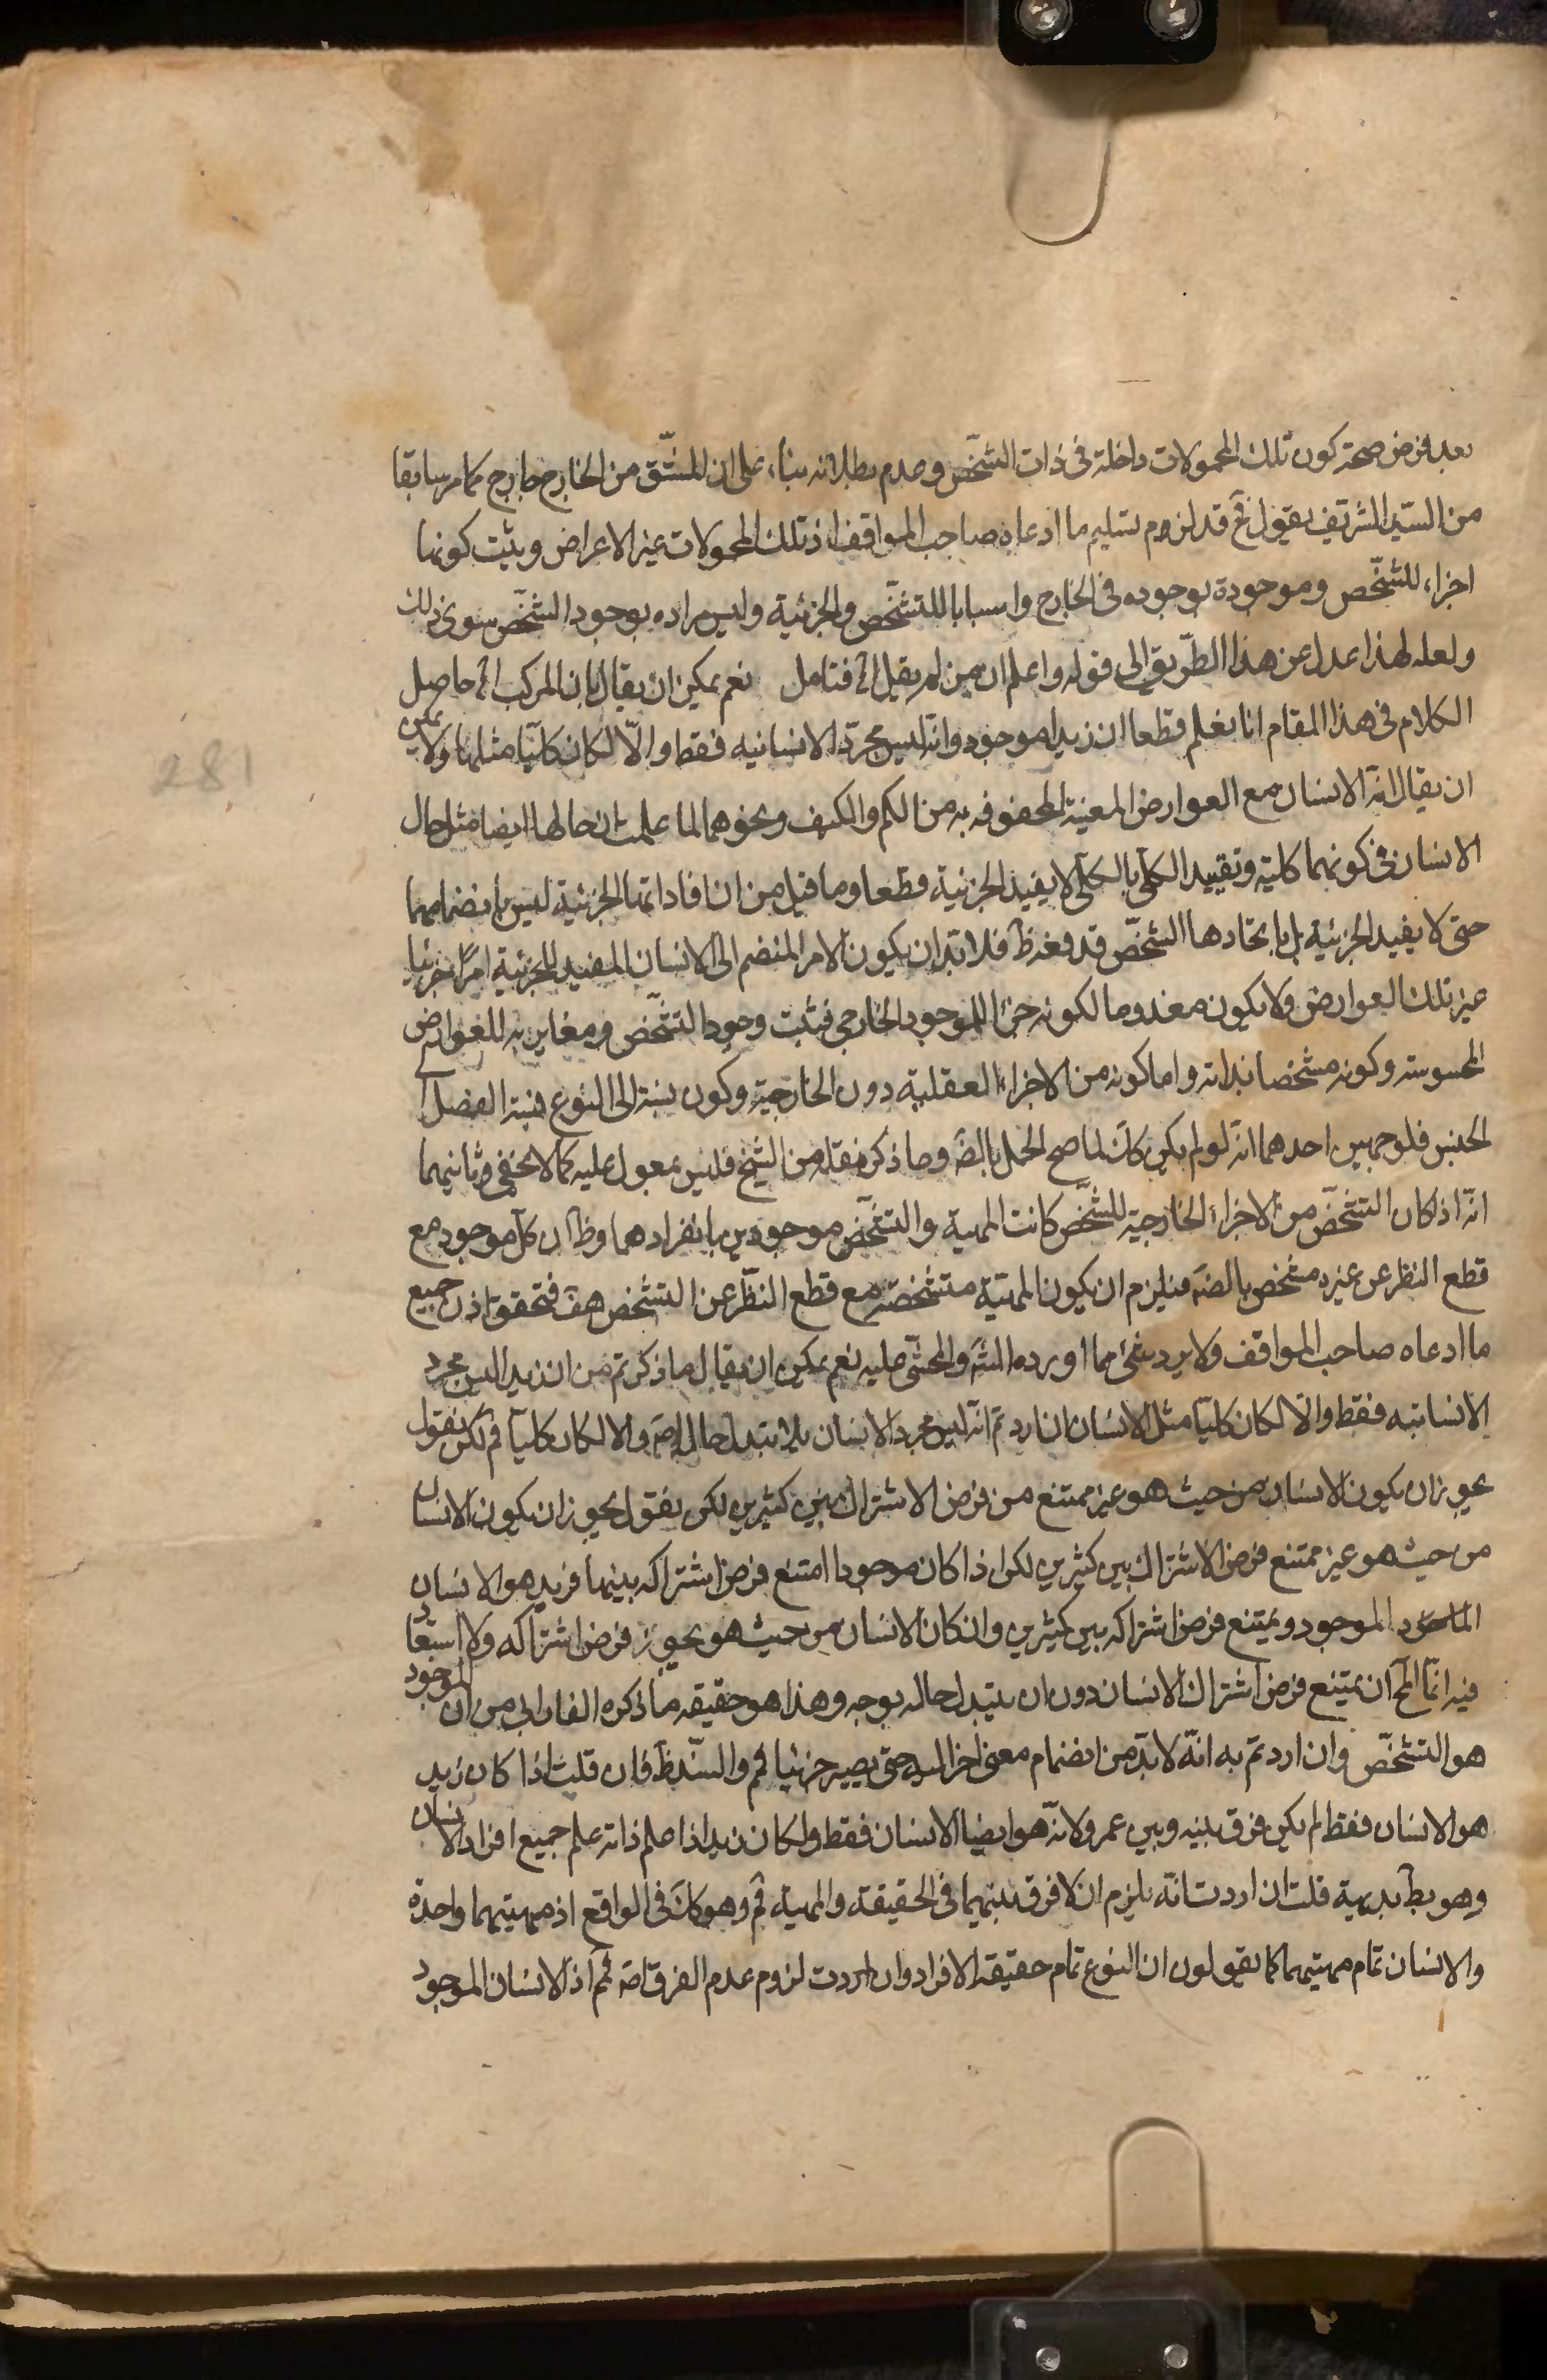 بعد فرض صحة كون تلك المحمولات داخلة فى ذات الشخّص وعدم بطلانه بناء على ان المشتّق من الخارج خارج كما مر سابقا
من السّيد الشريف نقول فح قد لزوم تسليم ما ادعاه صاحب المواقف اذ تلك المحمولات غير الاعراض ويثبت كونها
اجزاء للشخّص وموجودة بوجوده فى الخارج واسبابا للتشخّص والجزئية وليس مراده بوجود الشخّص سوى ذلك
ولعله لهذا عدل عن هذا الطّريق الى قوله واعلم ان من لم يقل الخ فتامل نعم يمكن ان يقال بان المركب الخ حاصل
الكلام فى هذا المقام انا نعلم قطعا ان زيدا موجود وانّه ليس مجرّد الانسانيه فقط والّا لكان كليّا مثلها ولا يمكن
ان يقال انّه الانسان مع العوارض المعنية المحفوفه به من الكم والكيف ونحوهما لما علمت ان حالها ايضا مثل حال
الانسان فى كونهما كلية وتقييد الكلّى بالكلّى لا يفيد الجزئية قطعا وما قيل من ان افادتها الجزئية ليس بانضمامها
حتى لا يفيد الجزئية بل بايجادها الشخّص قد دفعه ظ فلا بّد ان يكون الامر المنضم الى الانسان المفيد للجزئية امرًا جزئيا
غير تلك العوارض ولا يكون معدوما لكونه جزءا للموجود الخارجى فيثبت وجود التشخّص ومغايرته للعوارض
المحسوسة وكونه مشخصا بذاته واما كونه من الاجزاء العقلية دون الخارجية وكون نسبته الى النوع نسبة الفصل الى
الجنس فلوجهين احدهما انّه لو لم يكن كك لما صح الحمل بالضّه وما ذكر نقله من الشيخ فليس بمعول عليه كما لا يخفى وثانيهما
انّه اذا كان التشخّص من الاجزاء الخارجية للشخّص كانت المهية والتشخّص موجودين بانفرادهما وظ ان كل موجود مع
قطع النظر عن غيره مشخص بالضّه فيلزم ان يكون المهيّة متشخصّة مع قطع النظّر عن التشخص هف فتحقق اذن جميع
ما ادعاه صاحب المواقف ولا يرد شئ مما اورده الشّه والمحشّى عليه نعم يمكن ان يقال ما ذكرتم من ان زيدا ليس مجرد
الانسانيه فقط والّا لكان كليّا مثل الانسان ان اردتم انّه ليس مجرد الانسان بلا تبدل حال اصّه والا لكان كليّا فم لكن نقول
يجوز ان يكون الانسان من حيث هو غير ممتنع من فرض الاشتراك بين كثيرين لكن نقول يجوز ان يكون الانسان
من حيث هو غير ممتنع فرض الاشتراك بين كثيرين لكن اذا كان موجودا امتنع فرض اشتراكه بينها فزيد هو الانسان
الماخوذ الموجود ويمتنع فرض اشتراكه بين كثيرين وان كان الانسان من حيث هو يجوز فرض اشتراكه ولا استبعاد
فيه انّما المح ان يمتنع فرض اشتراك الانسان دون ان يتبدل حاله بوجه وهذا هو حقيقه ما ذكره الفارابى من ان الموجود
هو التشخّص وان اردتم به انّه لا بدّ من انضمام معنى اخر اليه حتى يصير جزئيا فم والسّند ظ فان قلت اذا كان زيد
هو الانسان فقط لم يكن فرق بينه وبين عمرو لانّه هو ايضا الانسان فقط ولكان زيد اذا علم ذاته علم جميع افراد الانسان
وهو بط بديهية قلت ان اردت انّه يلزم ان لا فرق بينهما فى الحقيقة والمهية فم وهو كك فى الواقع اذ مهيتهما واحدة
والانسان تمام مهيتهما كما يقولون ان النوع تمام حقيقة الافراد وان اردت لزوم عدم الفرق اصّه فم اذ الانسان الموجود
281